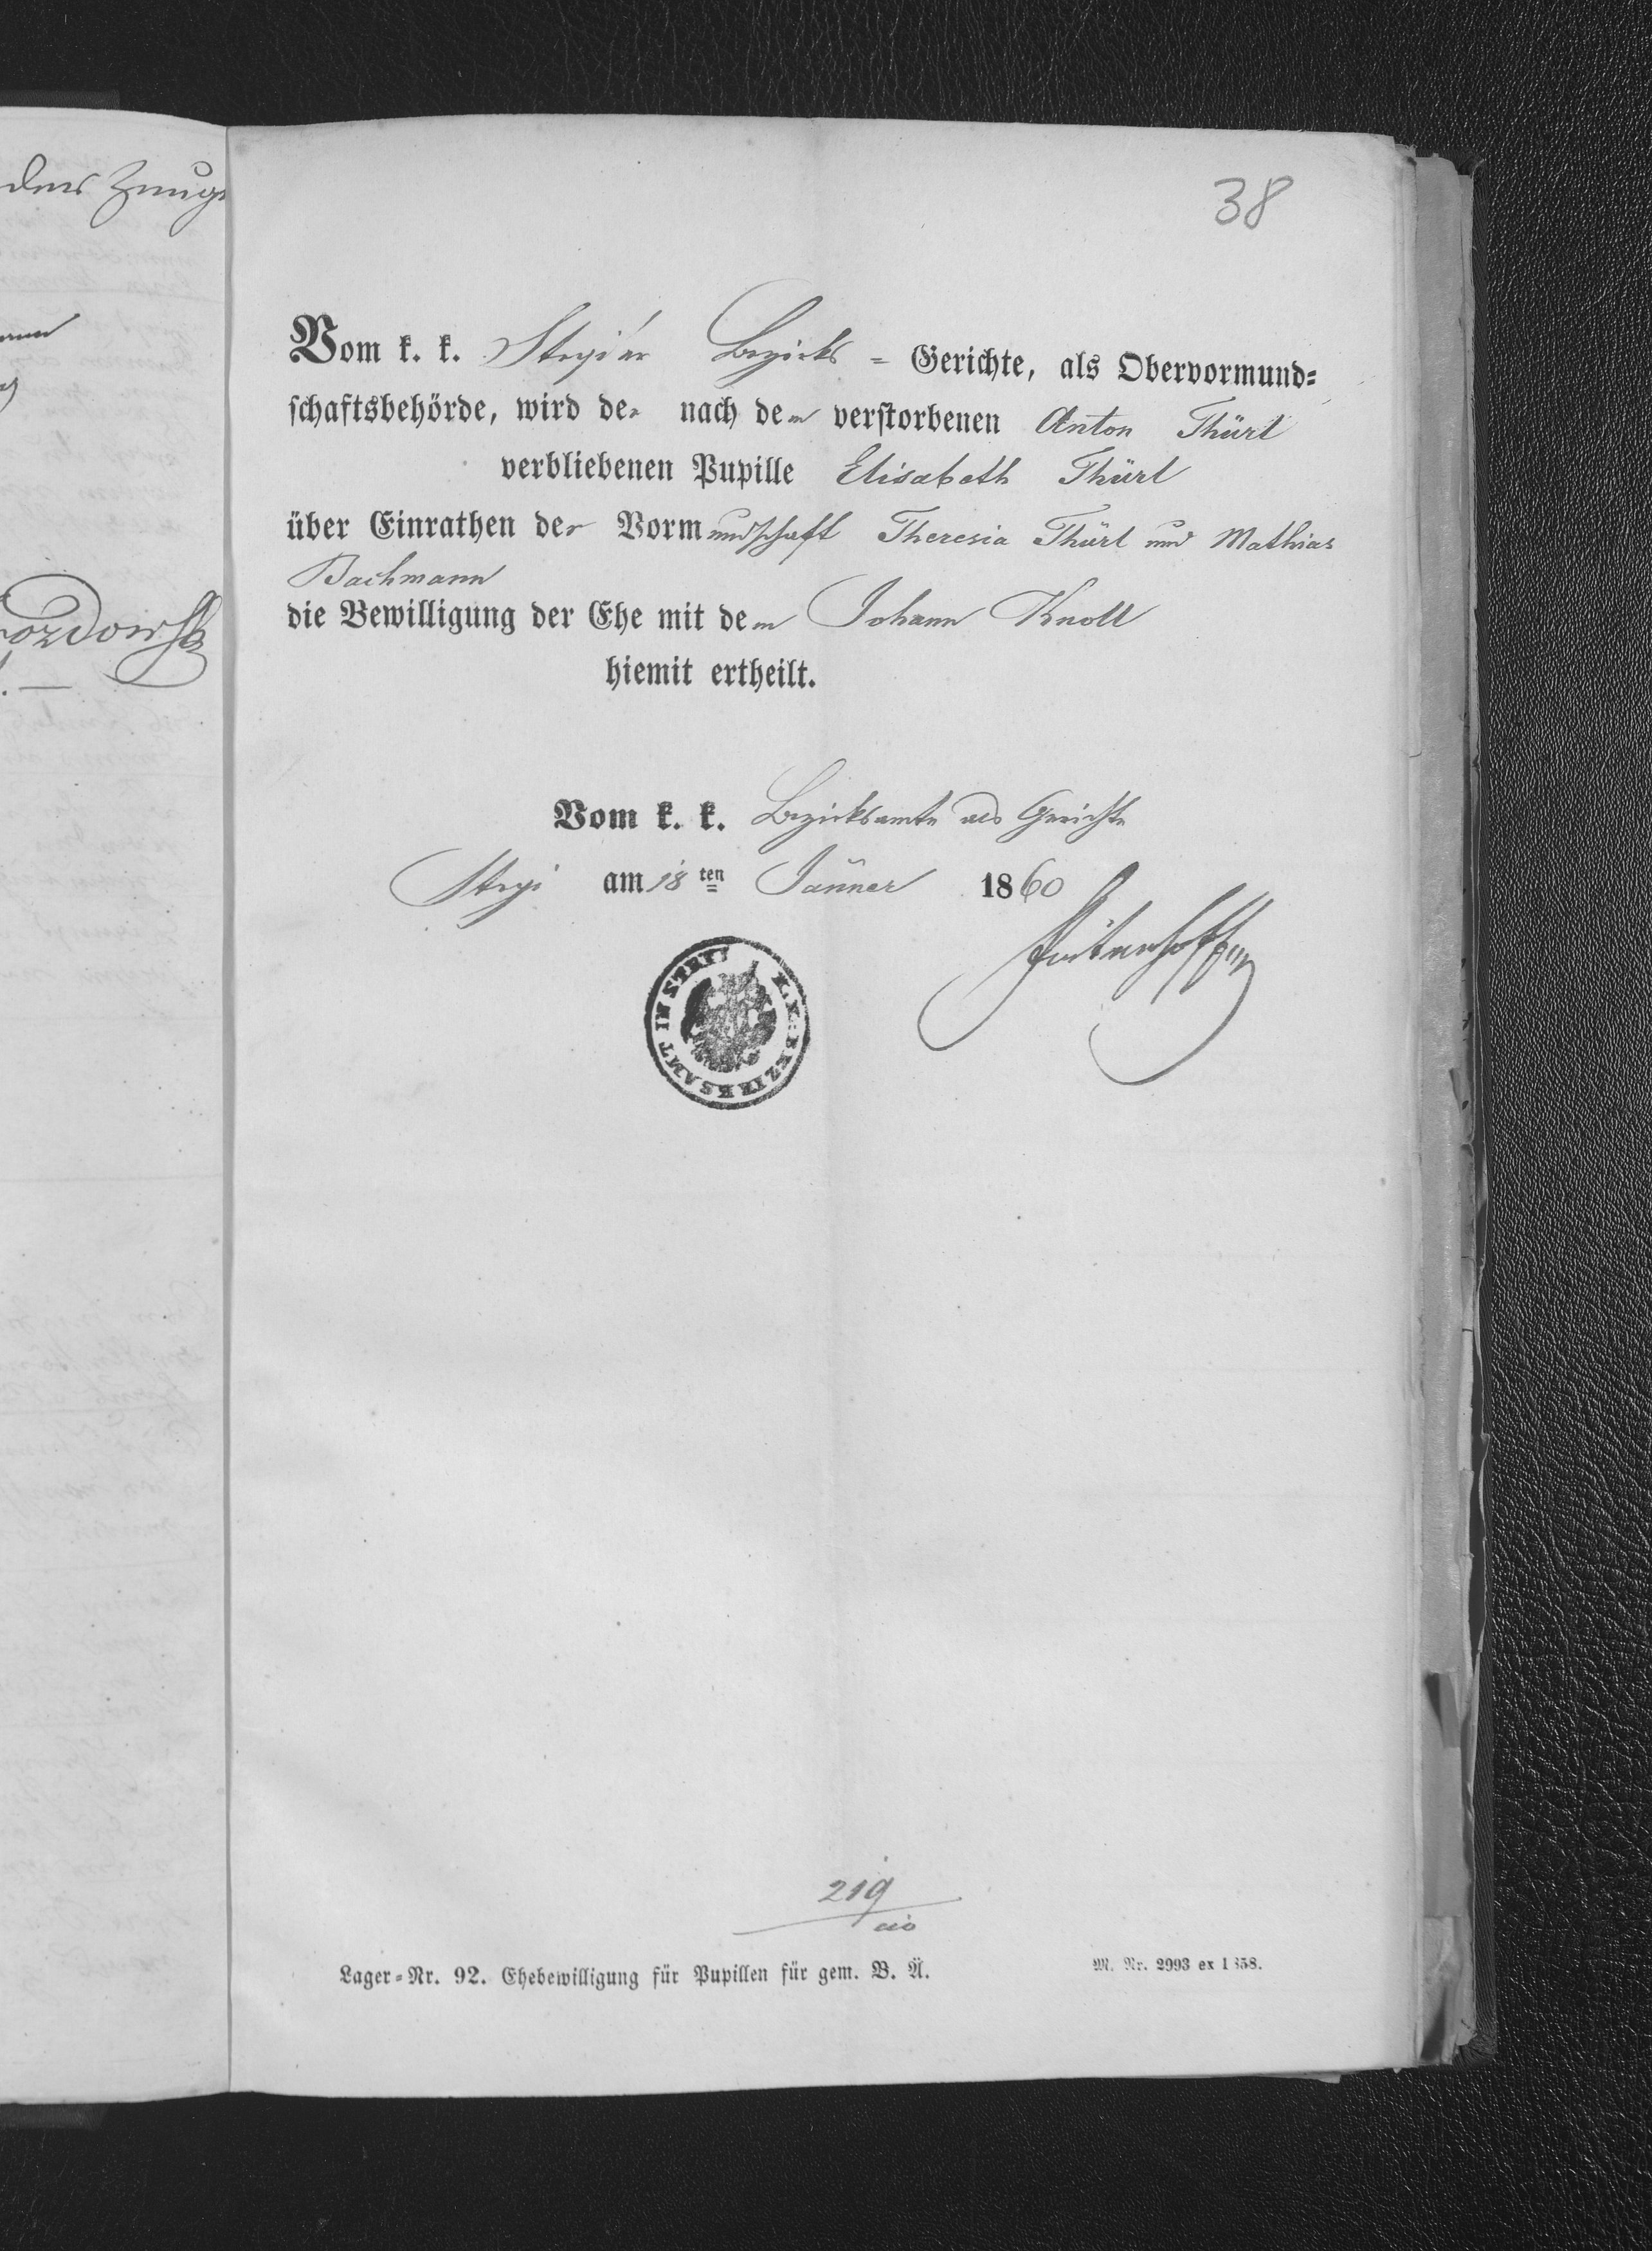 38
Vom k. k. Stryiér Bezirks = Gerichte, als Obervormund=
schaftsbehörde, wird der nach dem verstorbenen Anton Thürl
verbliebenen Pupille Elisabeth Thürl
über Einrathen der Vormundschaft Theresia Thürl und Mathias
Bachmann
die Bewilligung der Ehe mit dem Johann Knoll
hiemit ertheilt.
Vom k. k. Bezirksamte als Gerichte
Stryi am 18 ten Jänner 1860
K. K. BEZIRKSAMT IN STRYI
219
Lager=Nr. 92. Ehebewilligung für Pupillen für gem. B. Ä.
M. Nr. 2993 ex 1858.